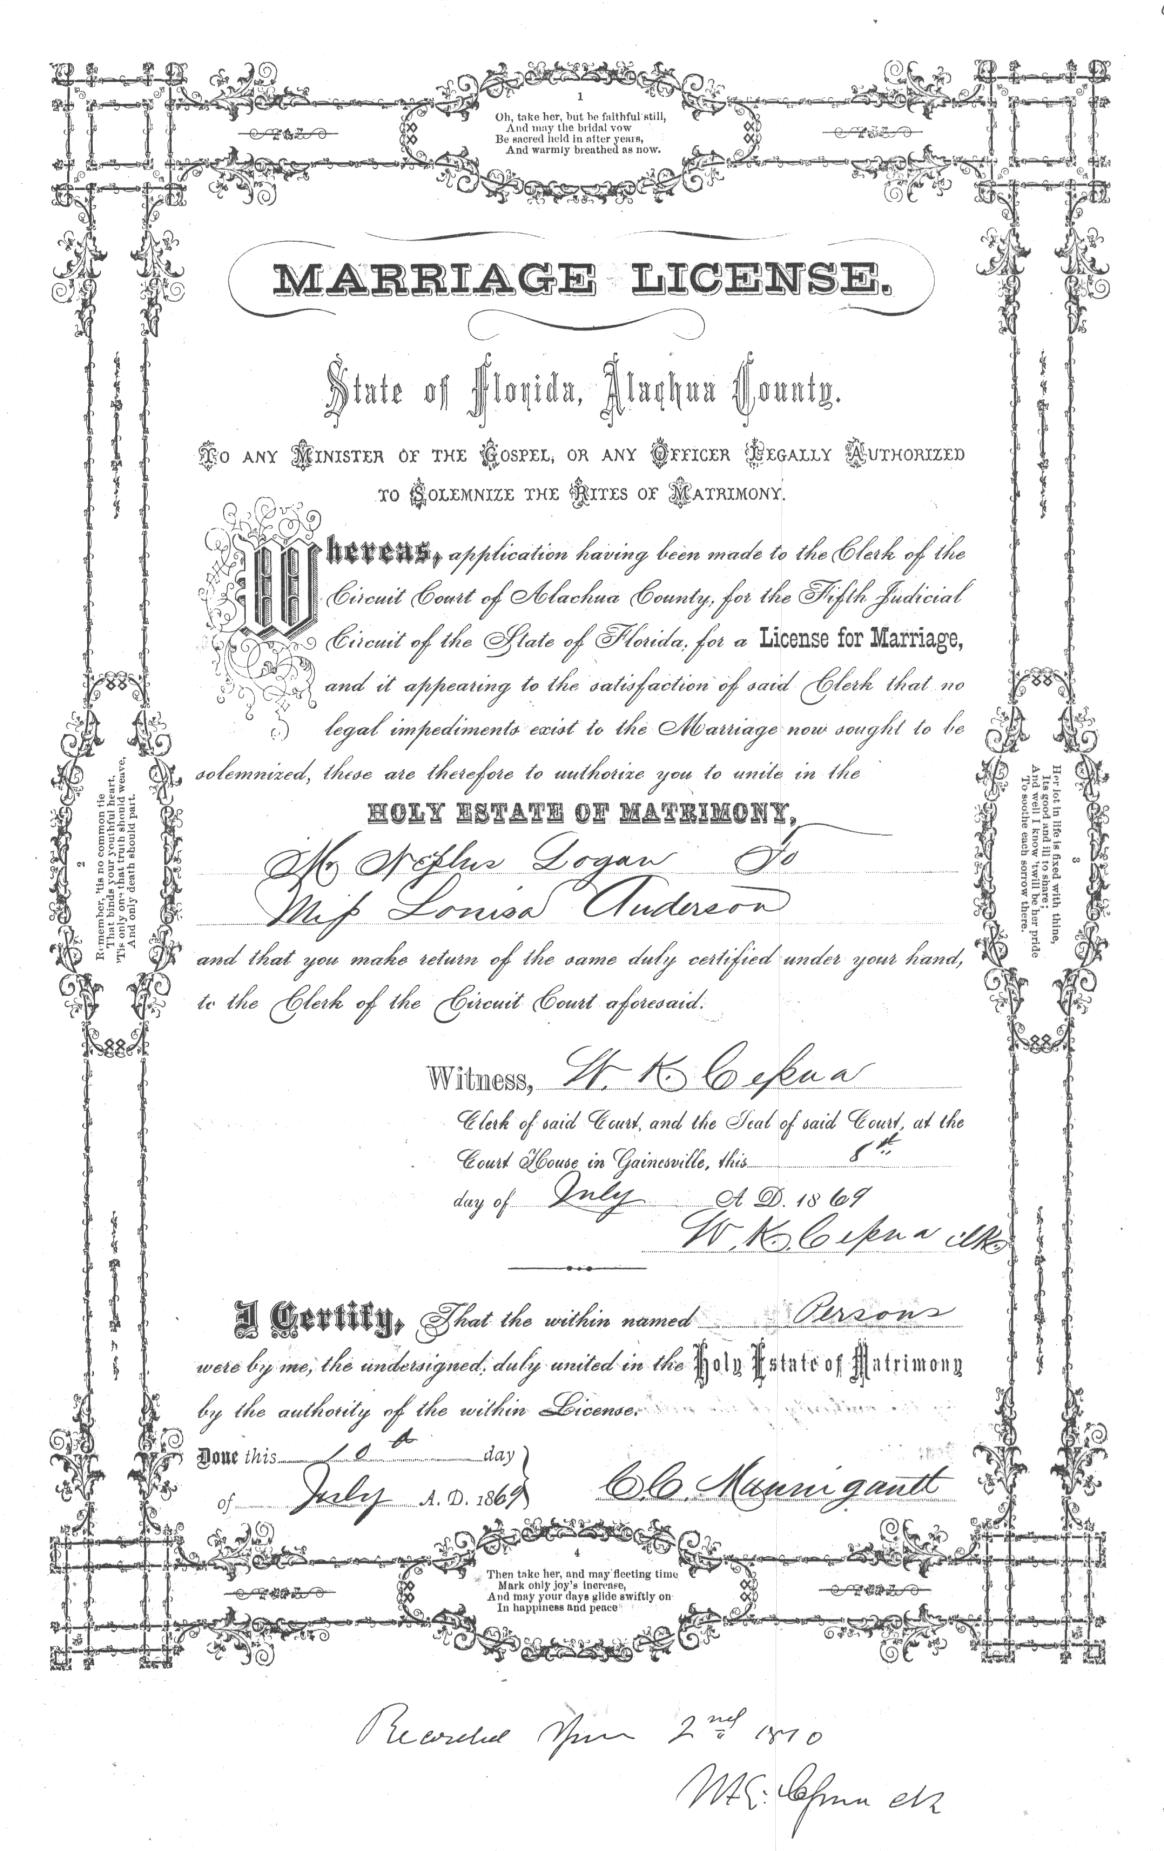 1
Oh, take her, but be faithful still,
And may the bridal vow
Be sacred held in after years,
And warmly breathed as now.
MARRIAGE LICENSE.
State of Florida, Alachua County.
TO ANY MINISTER OF THE GOSPEL, OR ANY OFFICER LEGALLY AUTHORIZED
TO SOLEMNIZE THE RITES OF MATRIMONY.
Whereas, application having been made to the Clerk of the
Circuit Court of Alachua County, for the Fifth Judicial
Circuit of the State of Florida, for a License for Marriage,
and it appearing to the satisfaction of said Clerk that no
legal impediments exist to the Marriage now sought to be
solemnized, these are therefore to authorize you to unite in the
HOLY ESTATE OF MATRIMONY,
Mr Logan To
Miss Louisa Anderson
and that you make return of the same duly certified under your hand,
to the Clerk of the Circuit Court aforesaid.
2
Remember, 'tis no common tie
That binds your youthful heart,
'Tis only one that truth should weave,
And only death should part.
3
Her lot in life is fixed with thine,
Its good and ill to share;
And well I know 'twill be her pride
To soothe each sorrow there.
Witness, W. K. Cessna
Clerk of said Court, and the Seal of said Court, at the
Court House in Gainesville, this 8th
day of July A. D. 1869
W. K. Cessna Clk
I Certify, That the within named Persons
were by me, the undersigned, duly united in the Holy Estate of Matrimony
by the authority of the within License.
Done this 10th day
of July A. D. 1869
C. C.
4
Then take her, and may fleeting time
Mark only joy's increase,
And may your days glide swiftly on
In happiness and peace
Recorded 2nd 1870
Cessna clk